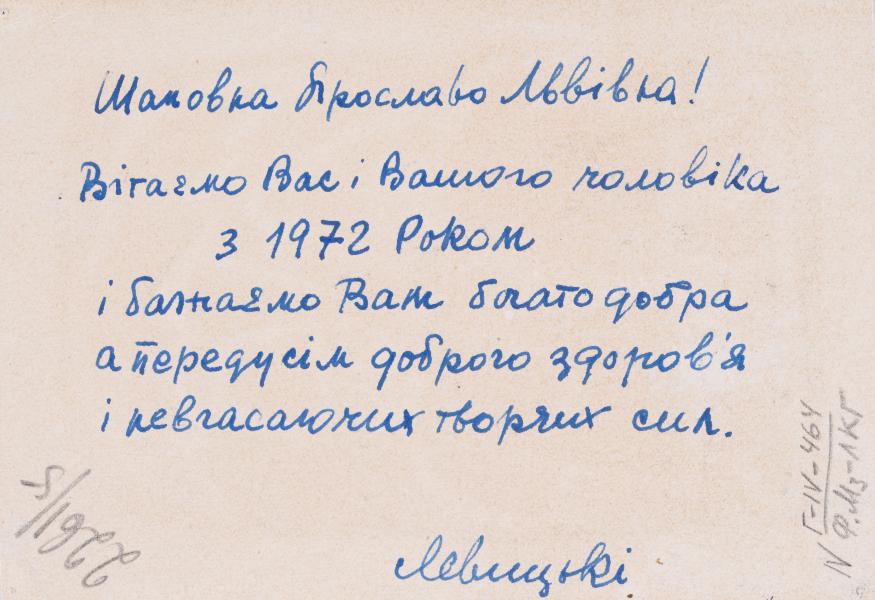 Шановна Ярославо Львівна!
Вітаємо Вас і Вашого чоловіка
з 1972 Роком
і бажаємо Вам богато добра
а передусім доброго здоров'я
і невгасаючих творчих сил.
Левицькі
2261/5
Г-IV-464
N Ф.Мз-ЛКГ